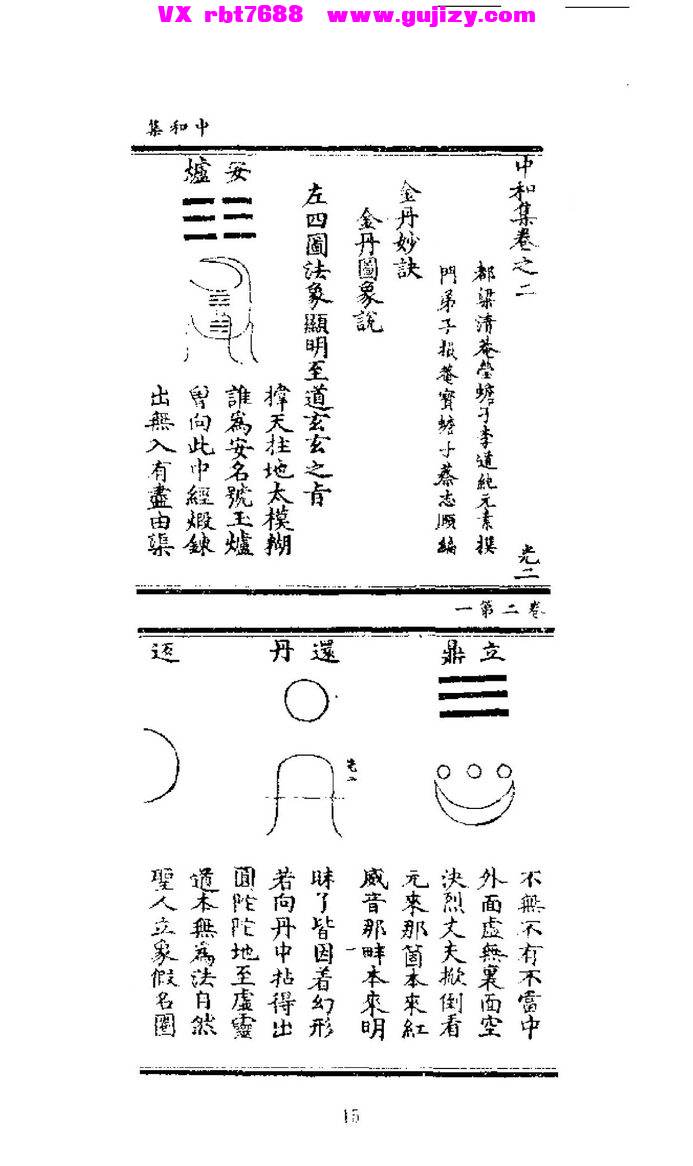 VX rbt7688 www.gujizy.com
中和集
中和集卷之二
光二
都梁清菴瑩蟾子李道純元素撰
門弟子損菴寶蟾子蔡志頤編
金丹妙訣
金丹圖象說
左四圖法象顯明至道玄玄之旨
安爐
撑天拄地太模糊
誰爲安名號玉爐
曾向此中經煅鍊
出無入有盡由渠
卷二第一
立鼎
不無不有不當中
外面虛無裏面空
決烈丈夫掀倒看
元來那箇本來紅
還丹
光二
威音那畔本來明
昧了皆因着幻形
若向丹中拈得出
圓陀陀地至虛靈
返
道本無爲法自然
聖人立象假名圈
15